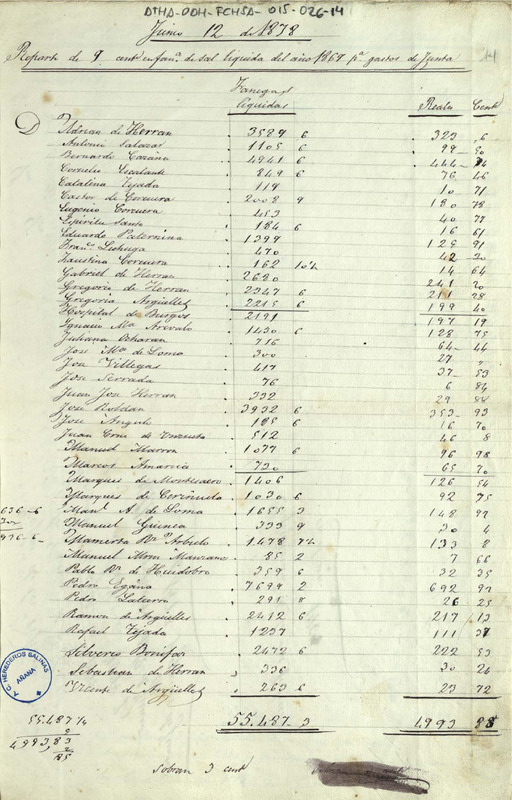 ATHA-DDH-FCHSA-015-026-14
Junio 12 de 1878
Reparto de 9 cent en fan.ª de sal liquida del año 1867 p.ª gastos de Junta
14
Fanegas
liquidas Reales Cent
D. Adrian de Herran 3589 6 323 6
Antonio Salazar 1105 6 99 50
Bernardo 4941 6 444 74
Cornelio Escalante 849 6 76 46
Catalina Tejada 119 10 71
Castor de Cercuera 2008 9 180 78
Eugenio Cercuera 453 40 77
Espiritu Santo 184 6 16 61
Eduardo Paternina 1399 125 91
Fran.ª Lechuga 470 42 30
Faustina Cercuera 162 10½ 14 64
Gabriel de Herran 2680 241 20
Gregorio de Herran 2347 6 211 28
Gregoria Argüelles 2215 6 199 40
Hospital de Burgos 2191 197 19
Ignacio M.ª Arevalo 1430 6 128 75
Juliana Ocharan 716 64 44
Jose M.ª de Lomo 300 27 "
Jose Villegas 417 37 53
Jose Serrada 76 6 84
Juan Jose Herran 332 29 88
Jose Roldan 3932 6 353 93
Jose Angulo 185 6 16 70
Juan Cruz de 512 46 8
Manuel Marron 1077 6 96 98
Marcos 730 65 70
Marques de Montesacro 1406 126 54
Marques de Cerezuelo 1030 6 92 75
Man.l A. de Lema 1655 3 148 97
636-6
300
936-6
Manuel Guinea 333 9 30 4
Mamerta 1478 7½ 133 8
Manuel Mom Manzano 85 2 7 66
Pablo R.z de Huidobro 359 6 32 35
Pedro Egaña 7699 2 692 92
Pedro Latorre 291 8 26 25
Ramon de Argüelles 2412 6 217 13
Rafael Tejada 1237 111 37
Silverio Bonifaz 2472 6 222 53
Sebastian de Herran 336 30 24
Vicente de Argüelles 263 6 23 72
A.C. HEREDEROS SALINAS
AÑANA
55.487 ¼
9
4993,83
55.487 3 4993 88
sobran 3 cent